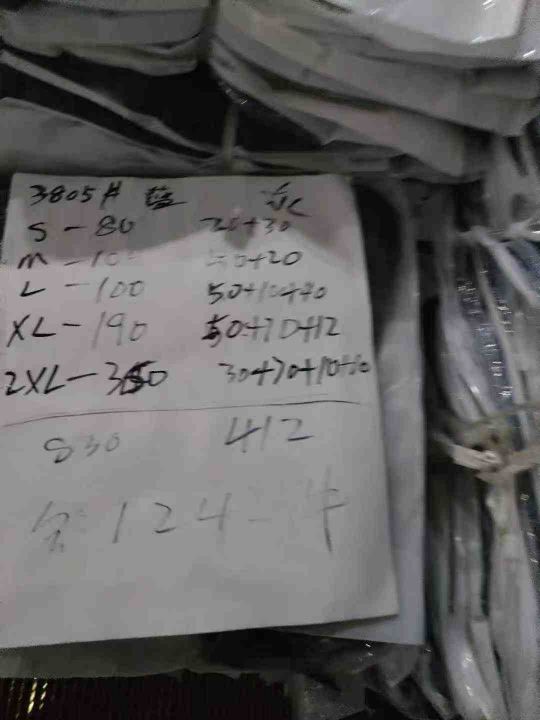 3805# 蓝 灰
S - 80 20+30
M - 10 +20
L - 100 50+10+
XL - 190 50+70+12
2XL - 350 30+70+10+
830 412
124 件